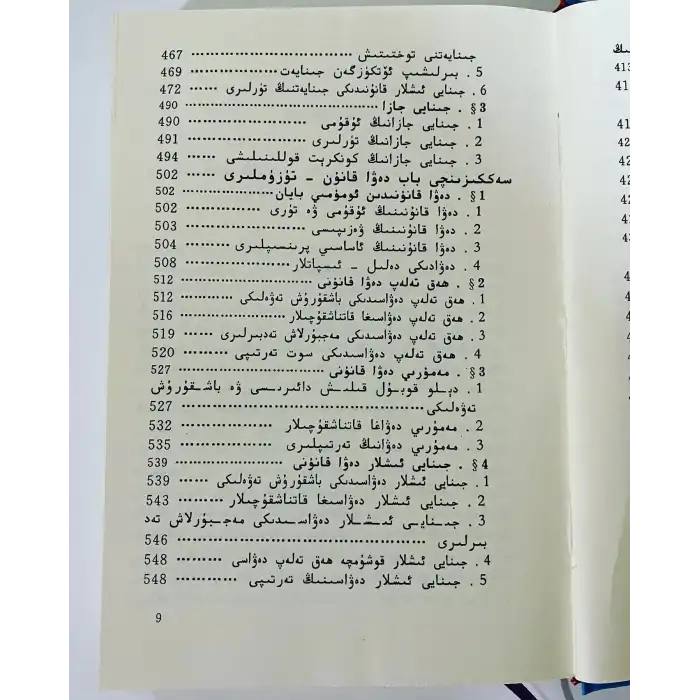 جىنايەتنى توختىتىش ·································· 467
5 . بىرلىشىپ ئۆتكۈزگەن جىنايەت ·················· 469
6 . جىنايى ئىشلار قانۇنىدىكى جىنايەتنىڭ تۈرلىرى ······ 472
§ 3 . جىنايى جازا ·································· 490
1 . جىنايى جازانىڭ ئۇقۇمى ························ 490
2 . جىنايى جازانىڭ تۈرلىرى ······················ 491
3 . جىنايى جازانىڭ كونكرېت قوللىنىلىشى ······ 494
سەككىزىنچى باب دەۋا قانۇن ـ تۈزۈملىرى ······ 502
§ 1 . دەۋا قانۇنىدىن ئومۇمىي بايان ·················· 502
1 . دەۋا قانۇنىنىڭ ئۇقۇمى ۋە تۈرى ················ 502
2 . دەۋا قانۇنىنىڭ ۋەزىپىسى ···················· 503
3 . دەۋا قانۇنىنىڭ ئاساسىي پرىنسىپلىرى ············ 504
4 . دەۋادىكى دەلىل ـ ئىسپاتلار ·················· 508
§ 2 . ھەق تەلەپ دەۋا قانۇنى ······················ 512
1 . ھەق تەلەپ دەۋاسىدىكى باشقۇرۇش تەۋەلىكى ······ 512
2 . ھەق تەلەپ دەۋاسىغا قاتناشقۇچىلار ············ 516
3 . ھەق تەلەپ دەۋاسىدىكى مەجبۇرلاش تەدبىرلىرى ······ 519
4 . ھەق تەلەپ دەۋاسىدىكى سوت تەرتىپى ············ 520
§ 3 . مەمۇرىي دەۋا قانۇنى ························ 527
1 . دېلو قوبۇل قىلىش دائىرىسى ۋە باشقۇرۇش
تەۋەلىكى ········································ 527
2 . مەمۇرىي دەۋاغا قاتناشقۇچىلار ················ 532
3 . مەمۇرىي دەۋانىڭ تەرتىپلىرى ·················· 535
§ 4 . جىنايى ئىشلار دەۋا قانۇنى ···················· 539
1 . جىنايى ئىشلار دەۋاسىدىكى باشقۇرۇش تەۋەلىكى ······ 539
2 . جىنايى ئىشلار دەۋاسىغا قاتناشقۇچىلار ·········· 543
3 . جىنايى ئىشلار دەۋاسىدىكى مەجبۇرلاش تەد
بىرلىرى ·········································· 546
4 . جىنايى ئىشلار قوشۇمچە ھەق تەلەپ دەۋاسى ········ 548
5 . جىنايى ئىشلار دەۋاسىنىڭ تەرتىپى ·············· 548
9